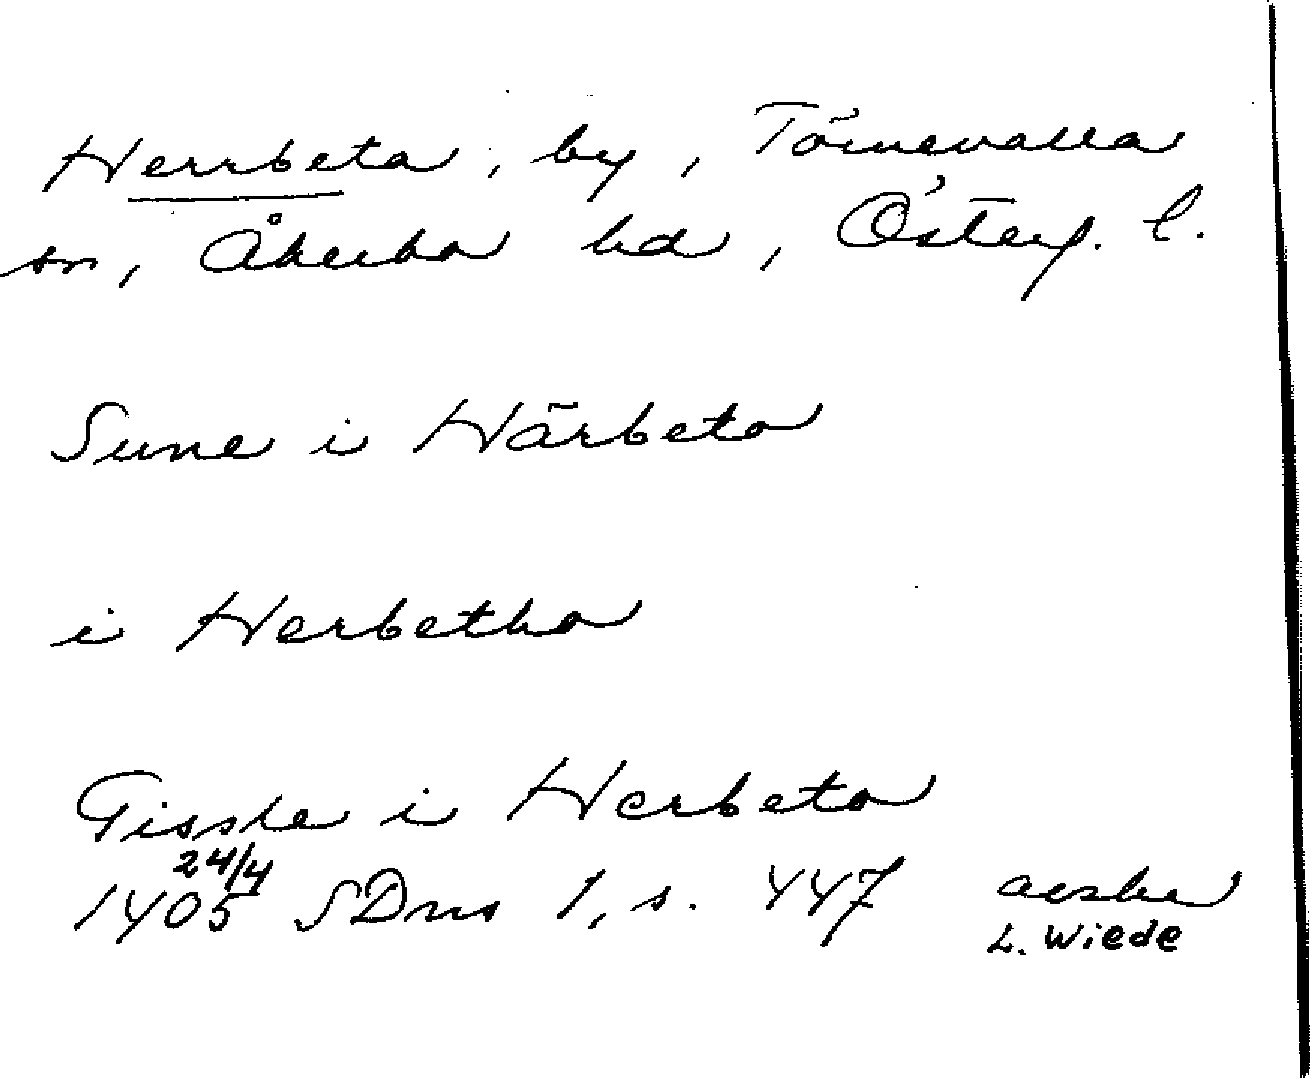 Herrbeta, by, Törnevalla
sn, Åkerbo hd, Österg. l.
Sune i Härbeta
i Herbetha
Gisske i Herbeta
24/4
1405 SDns 1, s. 447
L. Wiede